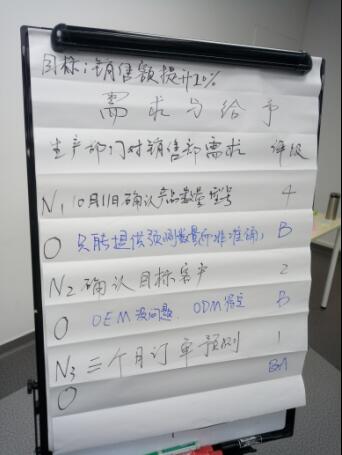 目标:销售额提升10%
需求与给予
生产部门对销售部需求 评级
N1 10月11日确认产品数量型号 4
O 负责提供预测数量 B
N2 确认目标客户 2
O OEM没问题、ODM待定 B
N3 三个月订单预测 1
O